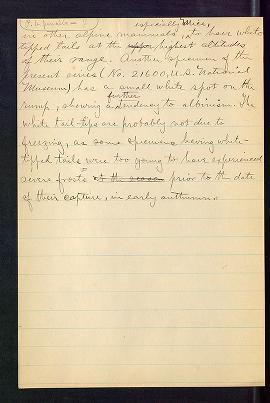 especially Mice,
in other alpine mammals, to have white-
tipped tails at the upper highest altitudes
of their range. Another specimen of the
present series (No. 21600, U.S. National
Museum) has a small white spot on the
further
rump, shewing a tendency to albinism. The
white tail-tips are probably not due to
freezing, as some specimens having white-
tipped tails were too young to have experienced
severe frosts at the season prior to the date
of their capture, in early autumn.